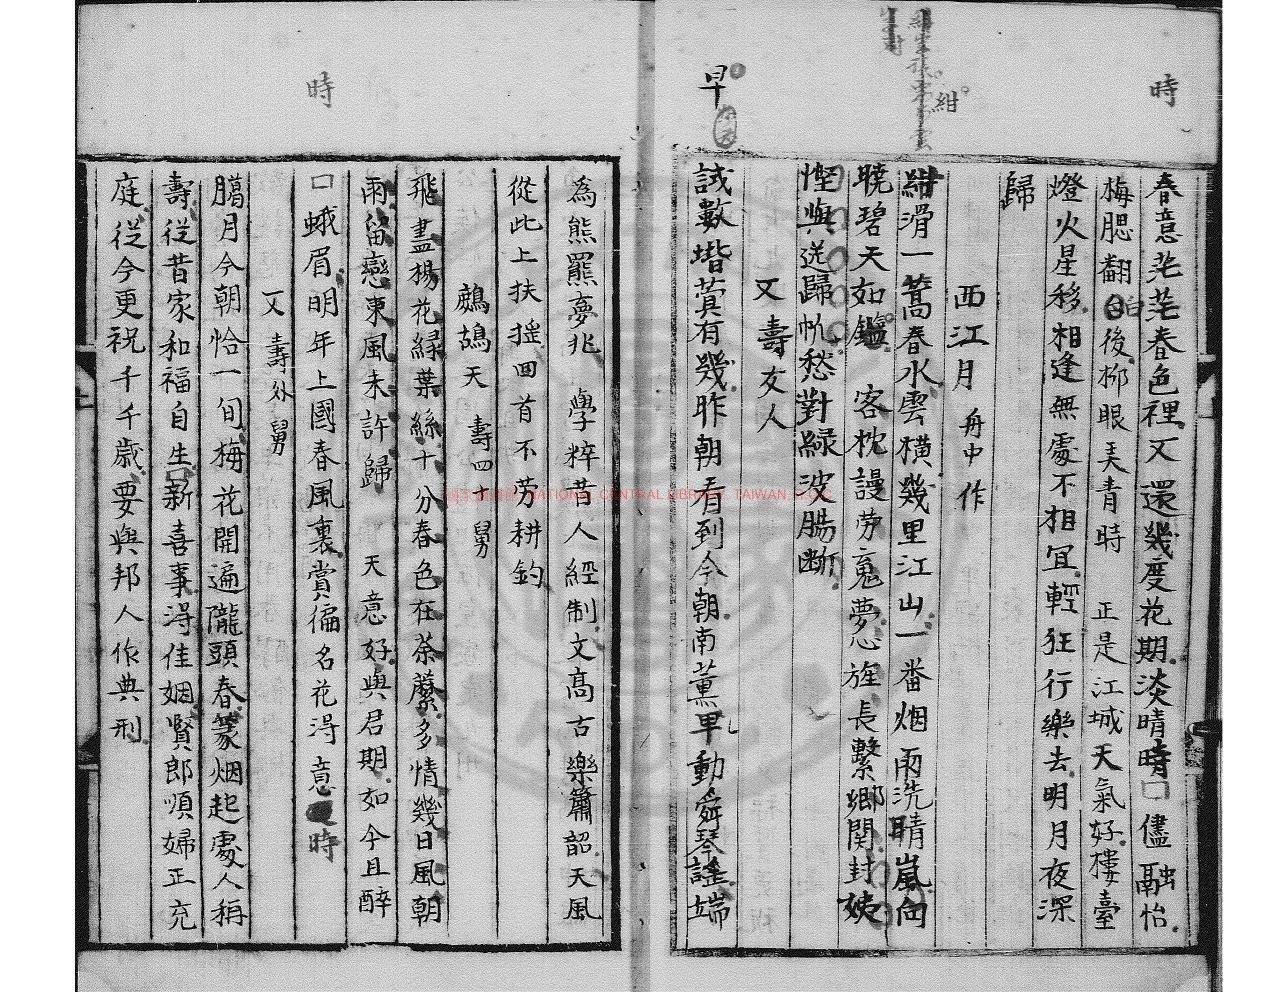 時
春意茫茫春色裡又還幾度花期淡晴時口儘融怡
梅腮翻白後柳眼美青時 正是江城天氣好樓臺
燈火星移相逢無處不相宜輕狂行樂去明月夜深
歸
西江月 舟中作
紺
紺滑一篙春水雲橫幾里江山一番烟雨洗晴嵐向
曉碧天如鑑 客枕謾勞魂夢悠旌長繫鄉関封
慳與送歸帆愁對緑波腸斷
又壽友人
早
試數堦蓂有幾昨朝看到今朝南薫早動舜琴謠端
為熊羆夢兆 學粹昔人經制文高古樂簫韶天風
從此上扶搖回首不勞耕釣
鷓鴣天 壽四十舅
飛盡楊花緑葉絲十分春色在荼䕷多情幾日風朝
雨留戀東風未許歸 天意好與君期如今且醉
口蛾眉明年上國春風裏賞徧名花淂意時
時
又 壽外舅
臈月今朝恰一旬梅花開遍隴頭春篆烟起處人稱
壽從昔家和福自生 新喜事淂佳姻賢郎順婦正充
庭從今更祝千千歲要與邦人作典刑
國家圖書館 NATIONAL CENTRAL LIBRARY, TAIWAN, R.O.C